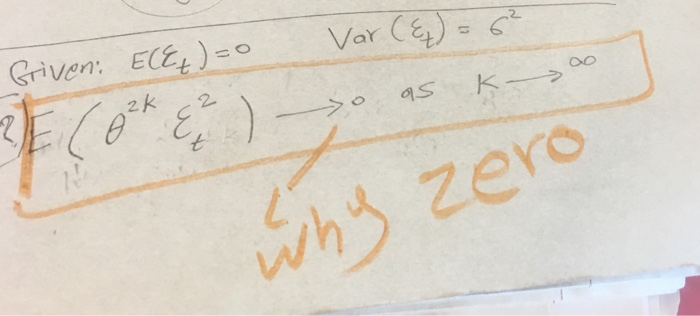 Given: E(ε_t)=0 Var(ε_t) = 6²
2) E(θ^{2k} ε_t²) → 0 as K → ∞
why zero